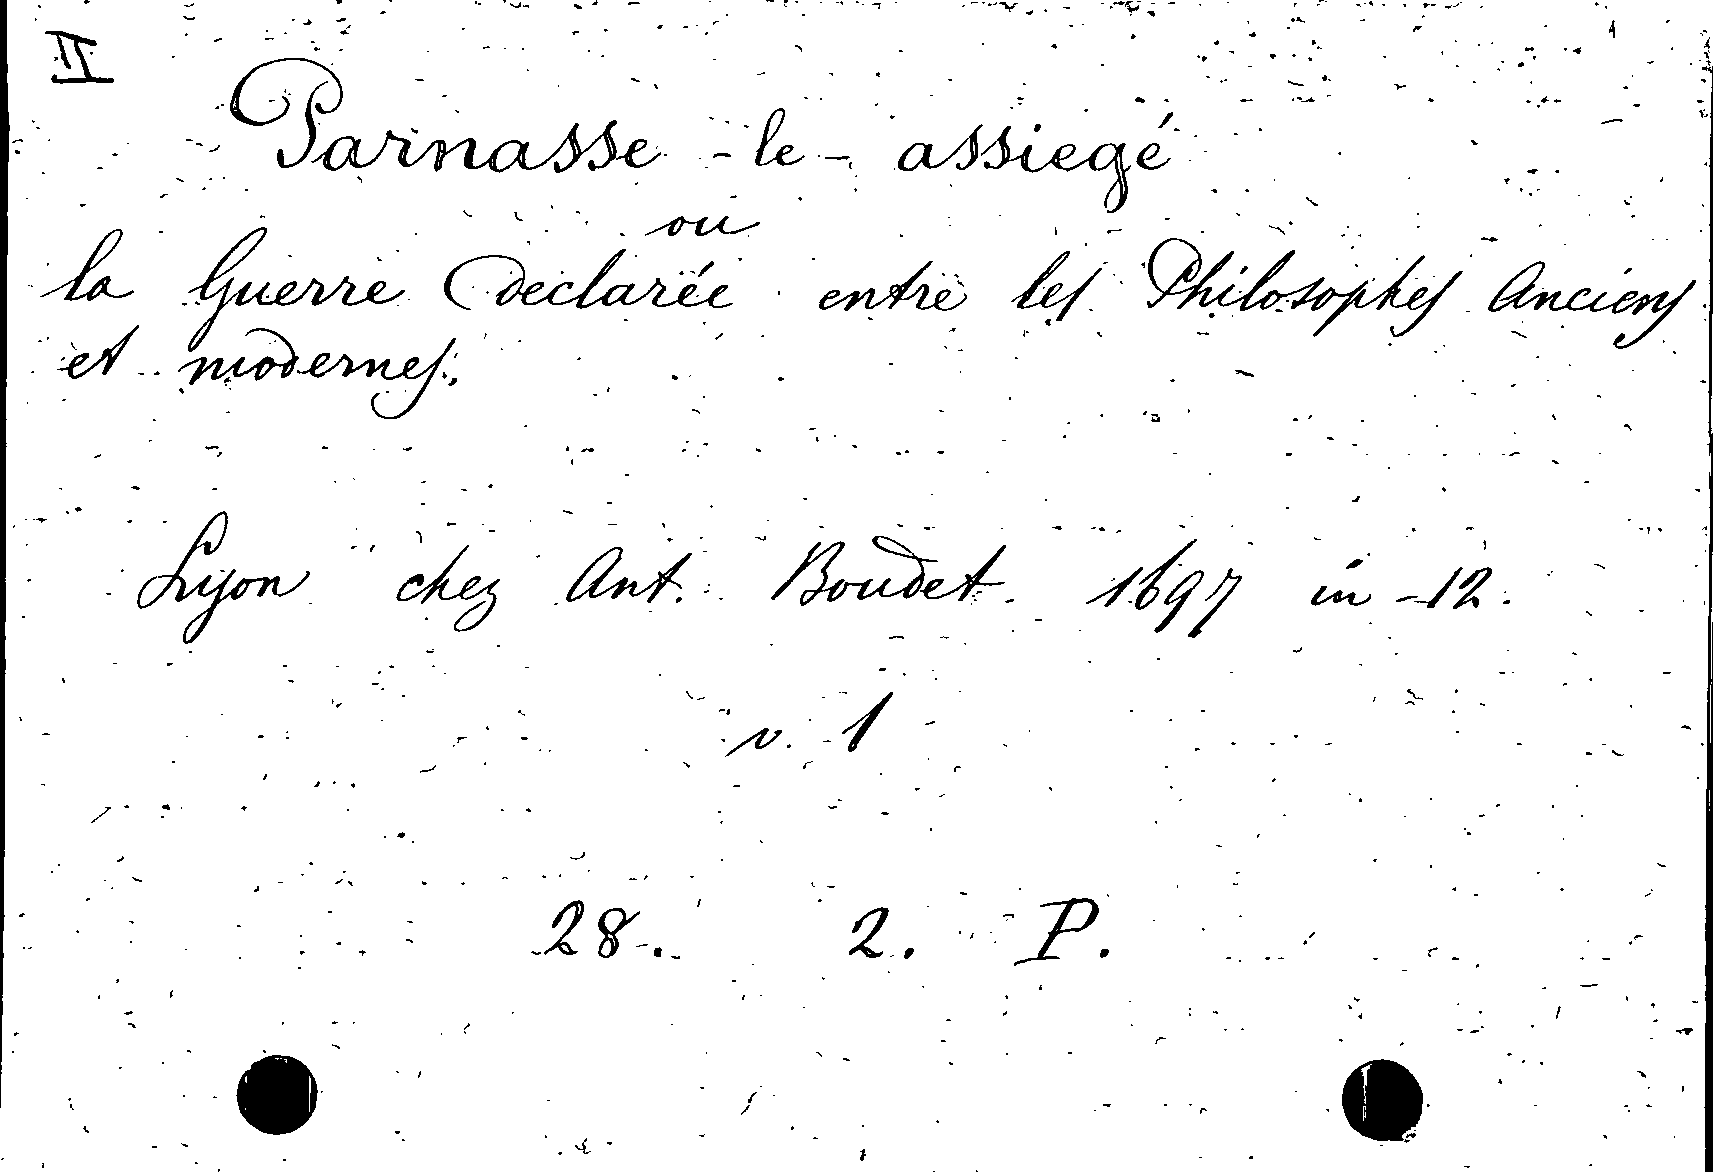 II
Parnasse -le- assiegé
ou
la Guerre declarée entre les Philosophes Anciens
et modernes.
Lyon chez Ant. Boudet. 1697 in -12.
v. 1
28. 2. P.